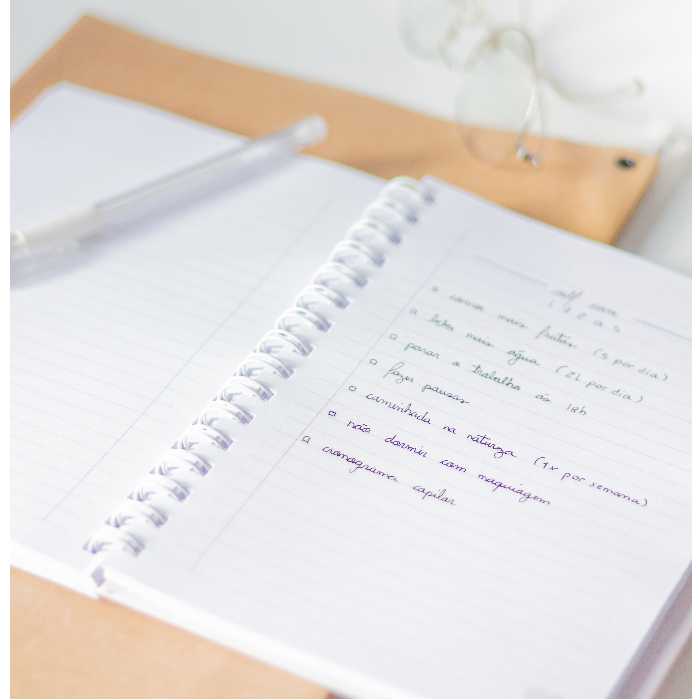 self care
ideas
comer mais frutas (3 por dia)
beber mais água (2L por dia)
parar o trabalho às 18h
fazer pausas
caminhada na natureza (1x por semana)
não dormir com maquiagem
cronograma capilar